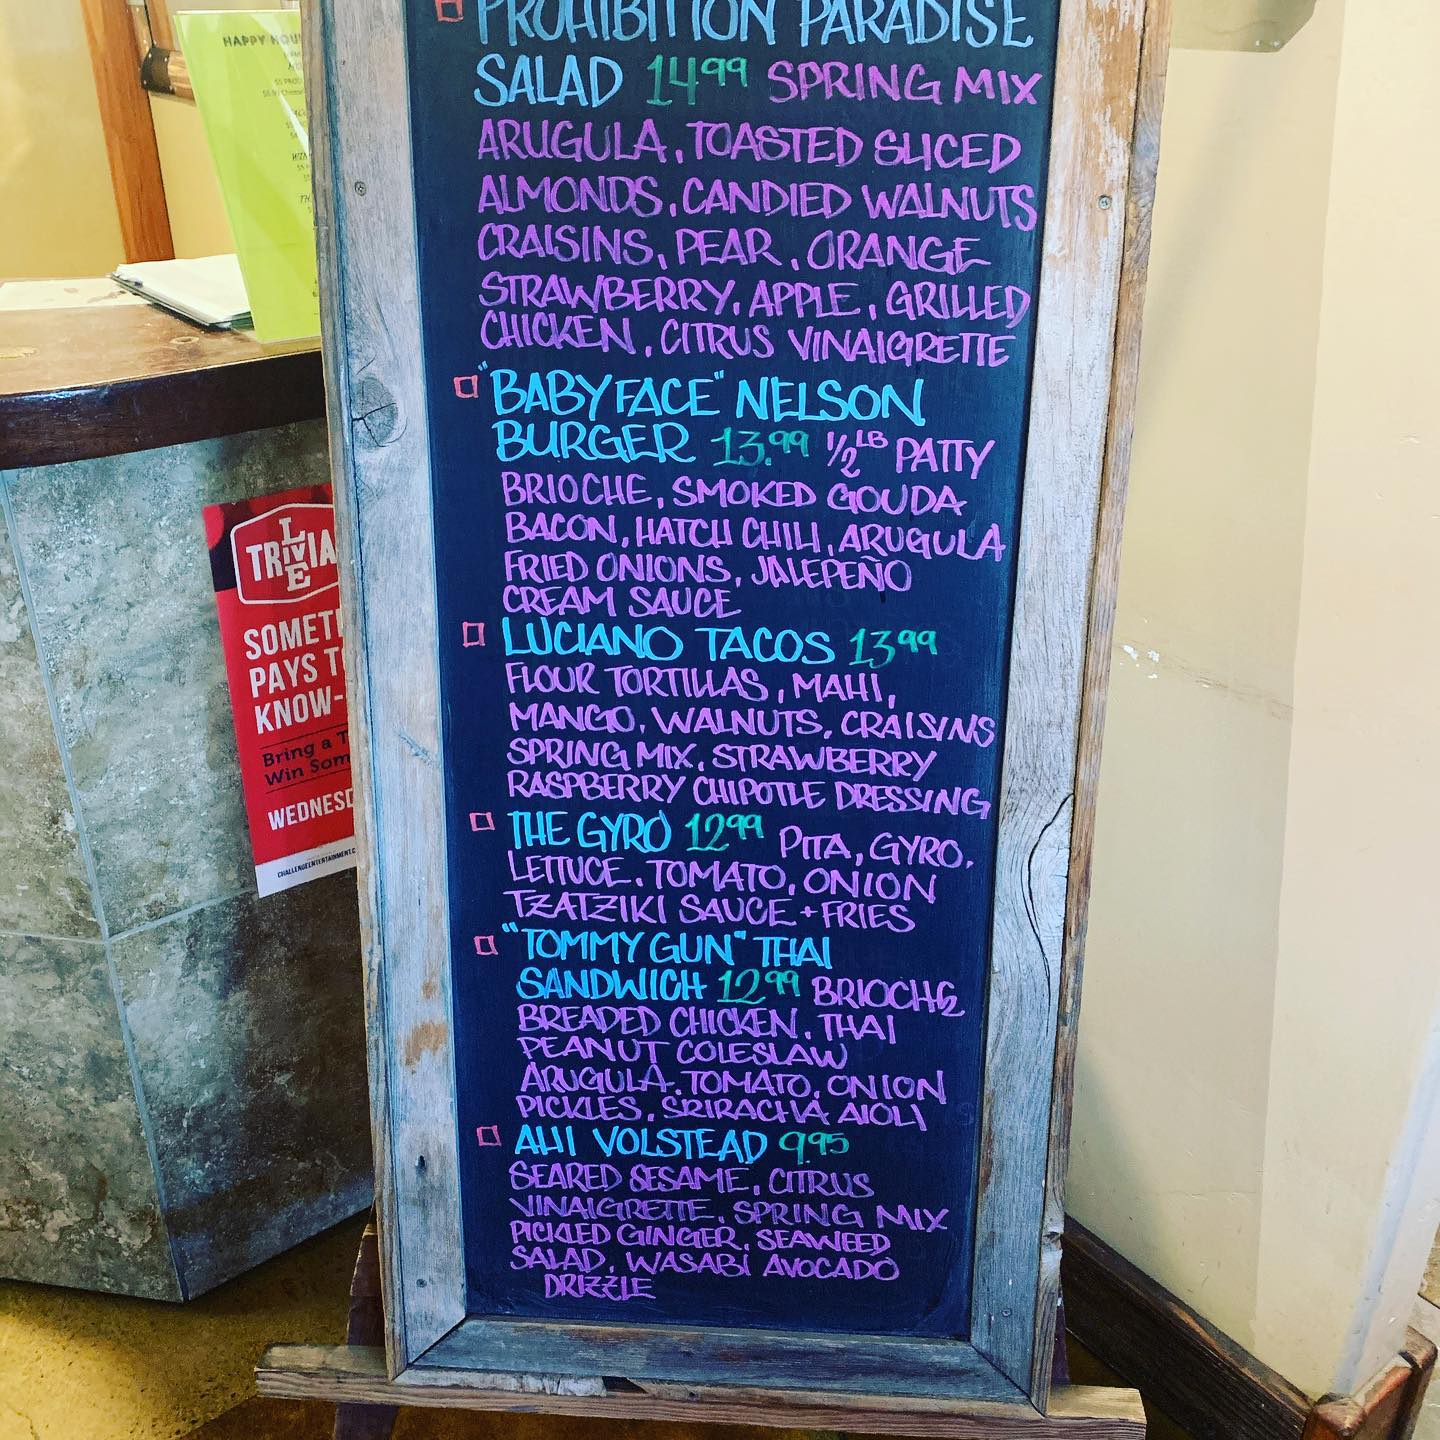 PROHIBITION PARADISE
SALAD 14.99 SPRING MIX
ARUGULA, TOASTED SLICED
ALMONDS, CANDIED WALNUTS
CRAISINS, PEAR, ORANGE
STRAWBERRY, APPLE, GRILLED
CHICKEN, CITRUS VINAIGRETTE
"BABYFACE" NELSON
BURGER 13.99 1/2 LB PATTY
BRIOCHE, SMOKED GOUDA
BACON, HATCH CHILI, ARUGULA
FRIED ONIONS, JALEPEÑO
CREAM SAUCE
LUCIANO TACOS 13.99
FLOUR TORTILLAS, MAHI,
MANGO, WALNUTS, CRAISINS
SPRING MIX, STRAWBERRY
RASPBERRY CHIPOTLE DRESSING
THE GYRO 12.99 PITA, GYRO,
LETTUCE, TOMATO, ONION
TZATZIKI SAUCE + FRIES
"TOMMY GUN" THAI
SANDWICH 12.99 BRIOCHE
BREADED CHICKEN, THAI
PEANUT COLESLAW
ARUGULA, TOMATO, ONION
PICKLES, SRIRACHA AIOLI
AHI VOLSTEAD 9.95
SEARED SESAME, CITRUS
VINAIGRETTE, SPRING MIX
PICKLED GINGER, SEAWEED
SALAD, WASABI AVOCADO
DRIZZLE
HAPPY HOU
LIVE
TRIVIA
SOMETI
PAYS T
KNOW-
Bring a T
Win Som
WEDNESD
CHALLENGEENTERTAINMENT.C